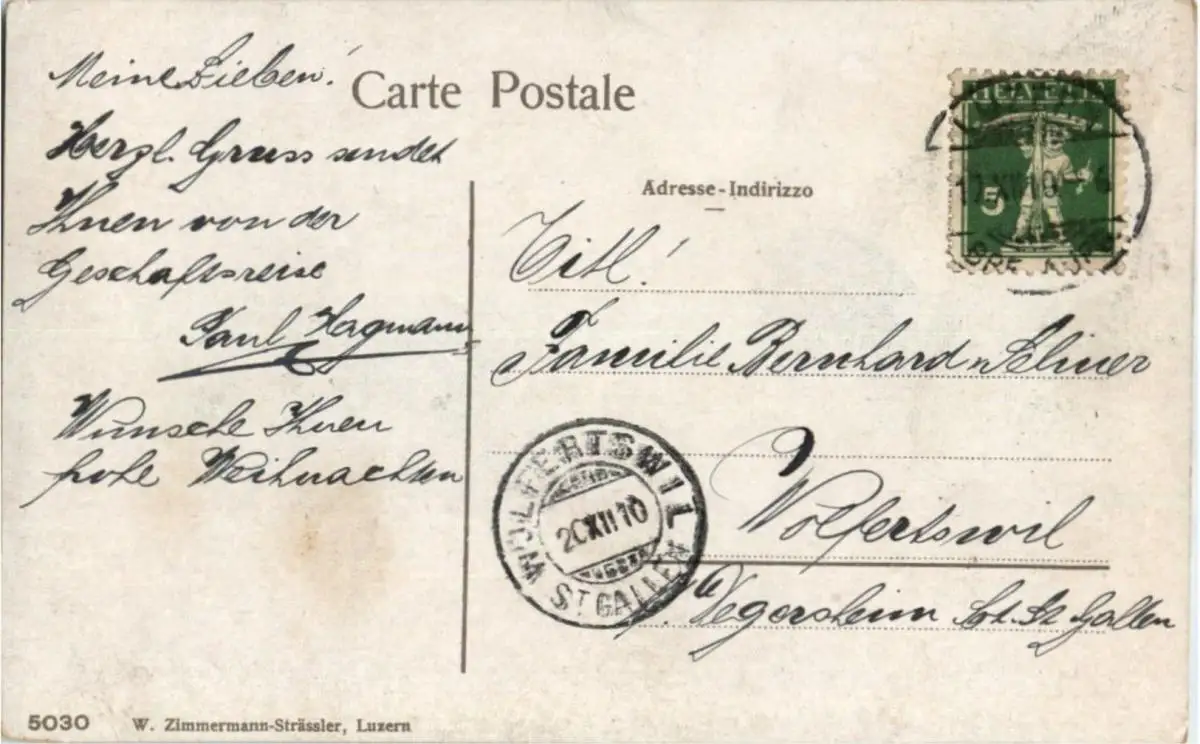 Meine Lieben!
Carte Postale
Herzl. Gruss sendet
Ihnen von der
Geschäftsreise
Paul Hagmann
Wünsche Ihnen
frohe Weihnachten
Adresse - Indirizzo
HELVETIA
5
Titl!
Familie Bernhard
Wolfertswil
Degersheim Kt. St. Gallen
WOLFERTSWIL
20 XII 10
ST. GALLEN
5030 W. Zimmermann-Strässler, Luzern